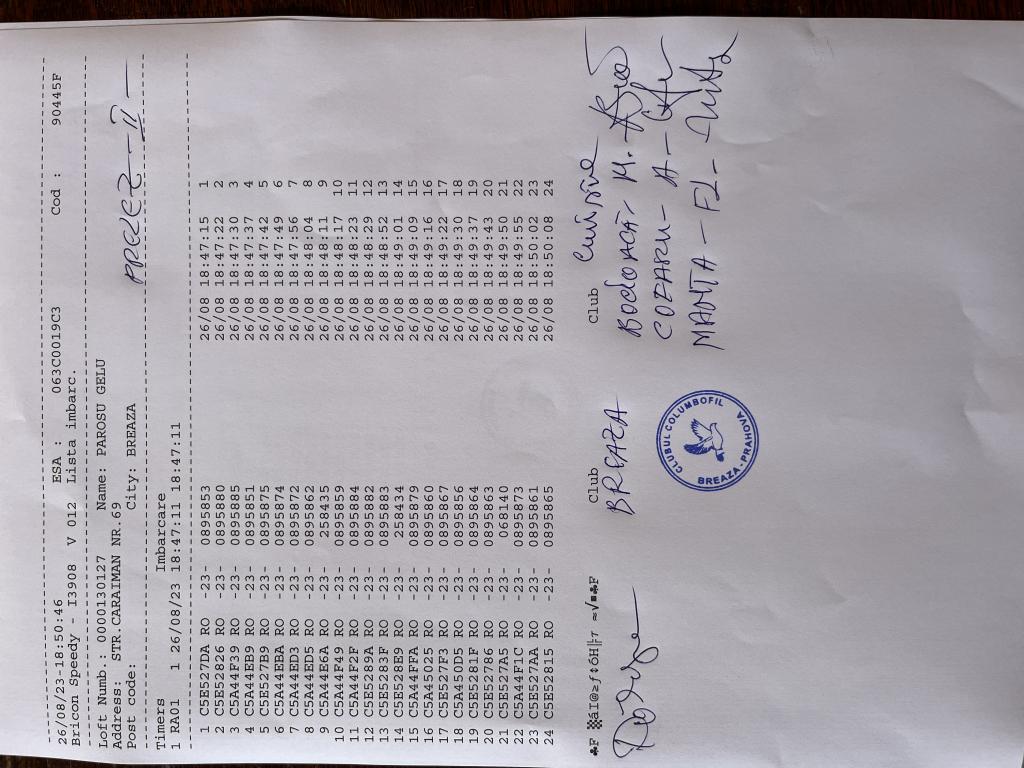 26/08/23-18:50:46 ESA : 063C0019C3 Cod : 90445F
Bricon Speedy - I3908 V 012 Lista imbarc.
Loft Numb.: 0000130127 Name: PAROSU GELU
Address: STR.CARAIMAN NR.69
Post code: City: BREAZA
Timers Imbarcare
1 RA01 1 26/08/23 18:47:11 18:47:11
1 C5E527DA RO -23- 0895853 26/08 18:47:15 1
2 C5E52826 RO -23- 0895880 26/08 18:47:22 2
3 C5A44F39 RO -23- 0895885 26/08 18:47:30 3
4 C5A44EB9 RO -23- 0895851 26/08 18:47:37 4
5 C5E527B9 RO -23- 0895875 26/08 18:47:42 5
6 C5A44EBA RO -23- 0895874 26/08 18:47:49 6
7 C5A44ED3 RO -23- 0895872 26/08 18:47:56 7
8 C5A44ED5 RO -23- 0895862 26/08 18:48:04 8
9 C5A44E6A RO -23- 258435 26/08 18:48:11 9
10 C5A44F49 RO -23- 0895859 26/08 18:48:17 10
11 C5A44F2F RO -23- 0895884 26/08 18:48:23 11
12 C5E5289A RO -23- 0895882 26/08 18:48:29 12
13 C5E5283F RO -23- 0895883 26/08 18:48:52 13
14 C5E528E9 RO -23- 258434 26/08 18:49:01 14
15 C5A44FFA RO -23- 0895879 26/08 18:49:09 15
16 C5A45025 RO -23- 0895860 26/08 18:49:16 16
17 C5E527F3 RO -23- 0895867 26/08 18:49:22 17
18 C5A450D5 RO -23- 0895856 26/08 18:49:30 18
19 C5E5281F RO -23- 0895864 26/08 18:49:37 19
20 C5E52786 RO -23- 0895863 26/08 18:49:43 20
21 C5E527A5 RO -23- 068140 26/08 18:49:50 21
22 C5A44F1C RO -23- 0895873 26/08 18:49:55 22
23 C5E527AA RO -23- 0895861 26/08 18:50:02 23
24 C5E52815 RO -23- 0895865 26/08 18:50:08 24
Club Club
BREAZA
MANTA - FL -
CLUBUL COLUMBOFIL
BREAZA-PRAHOVA